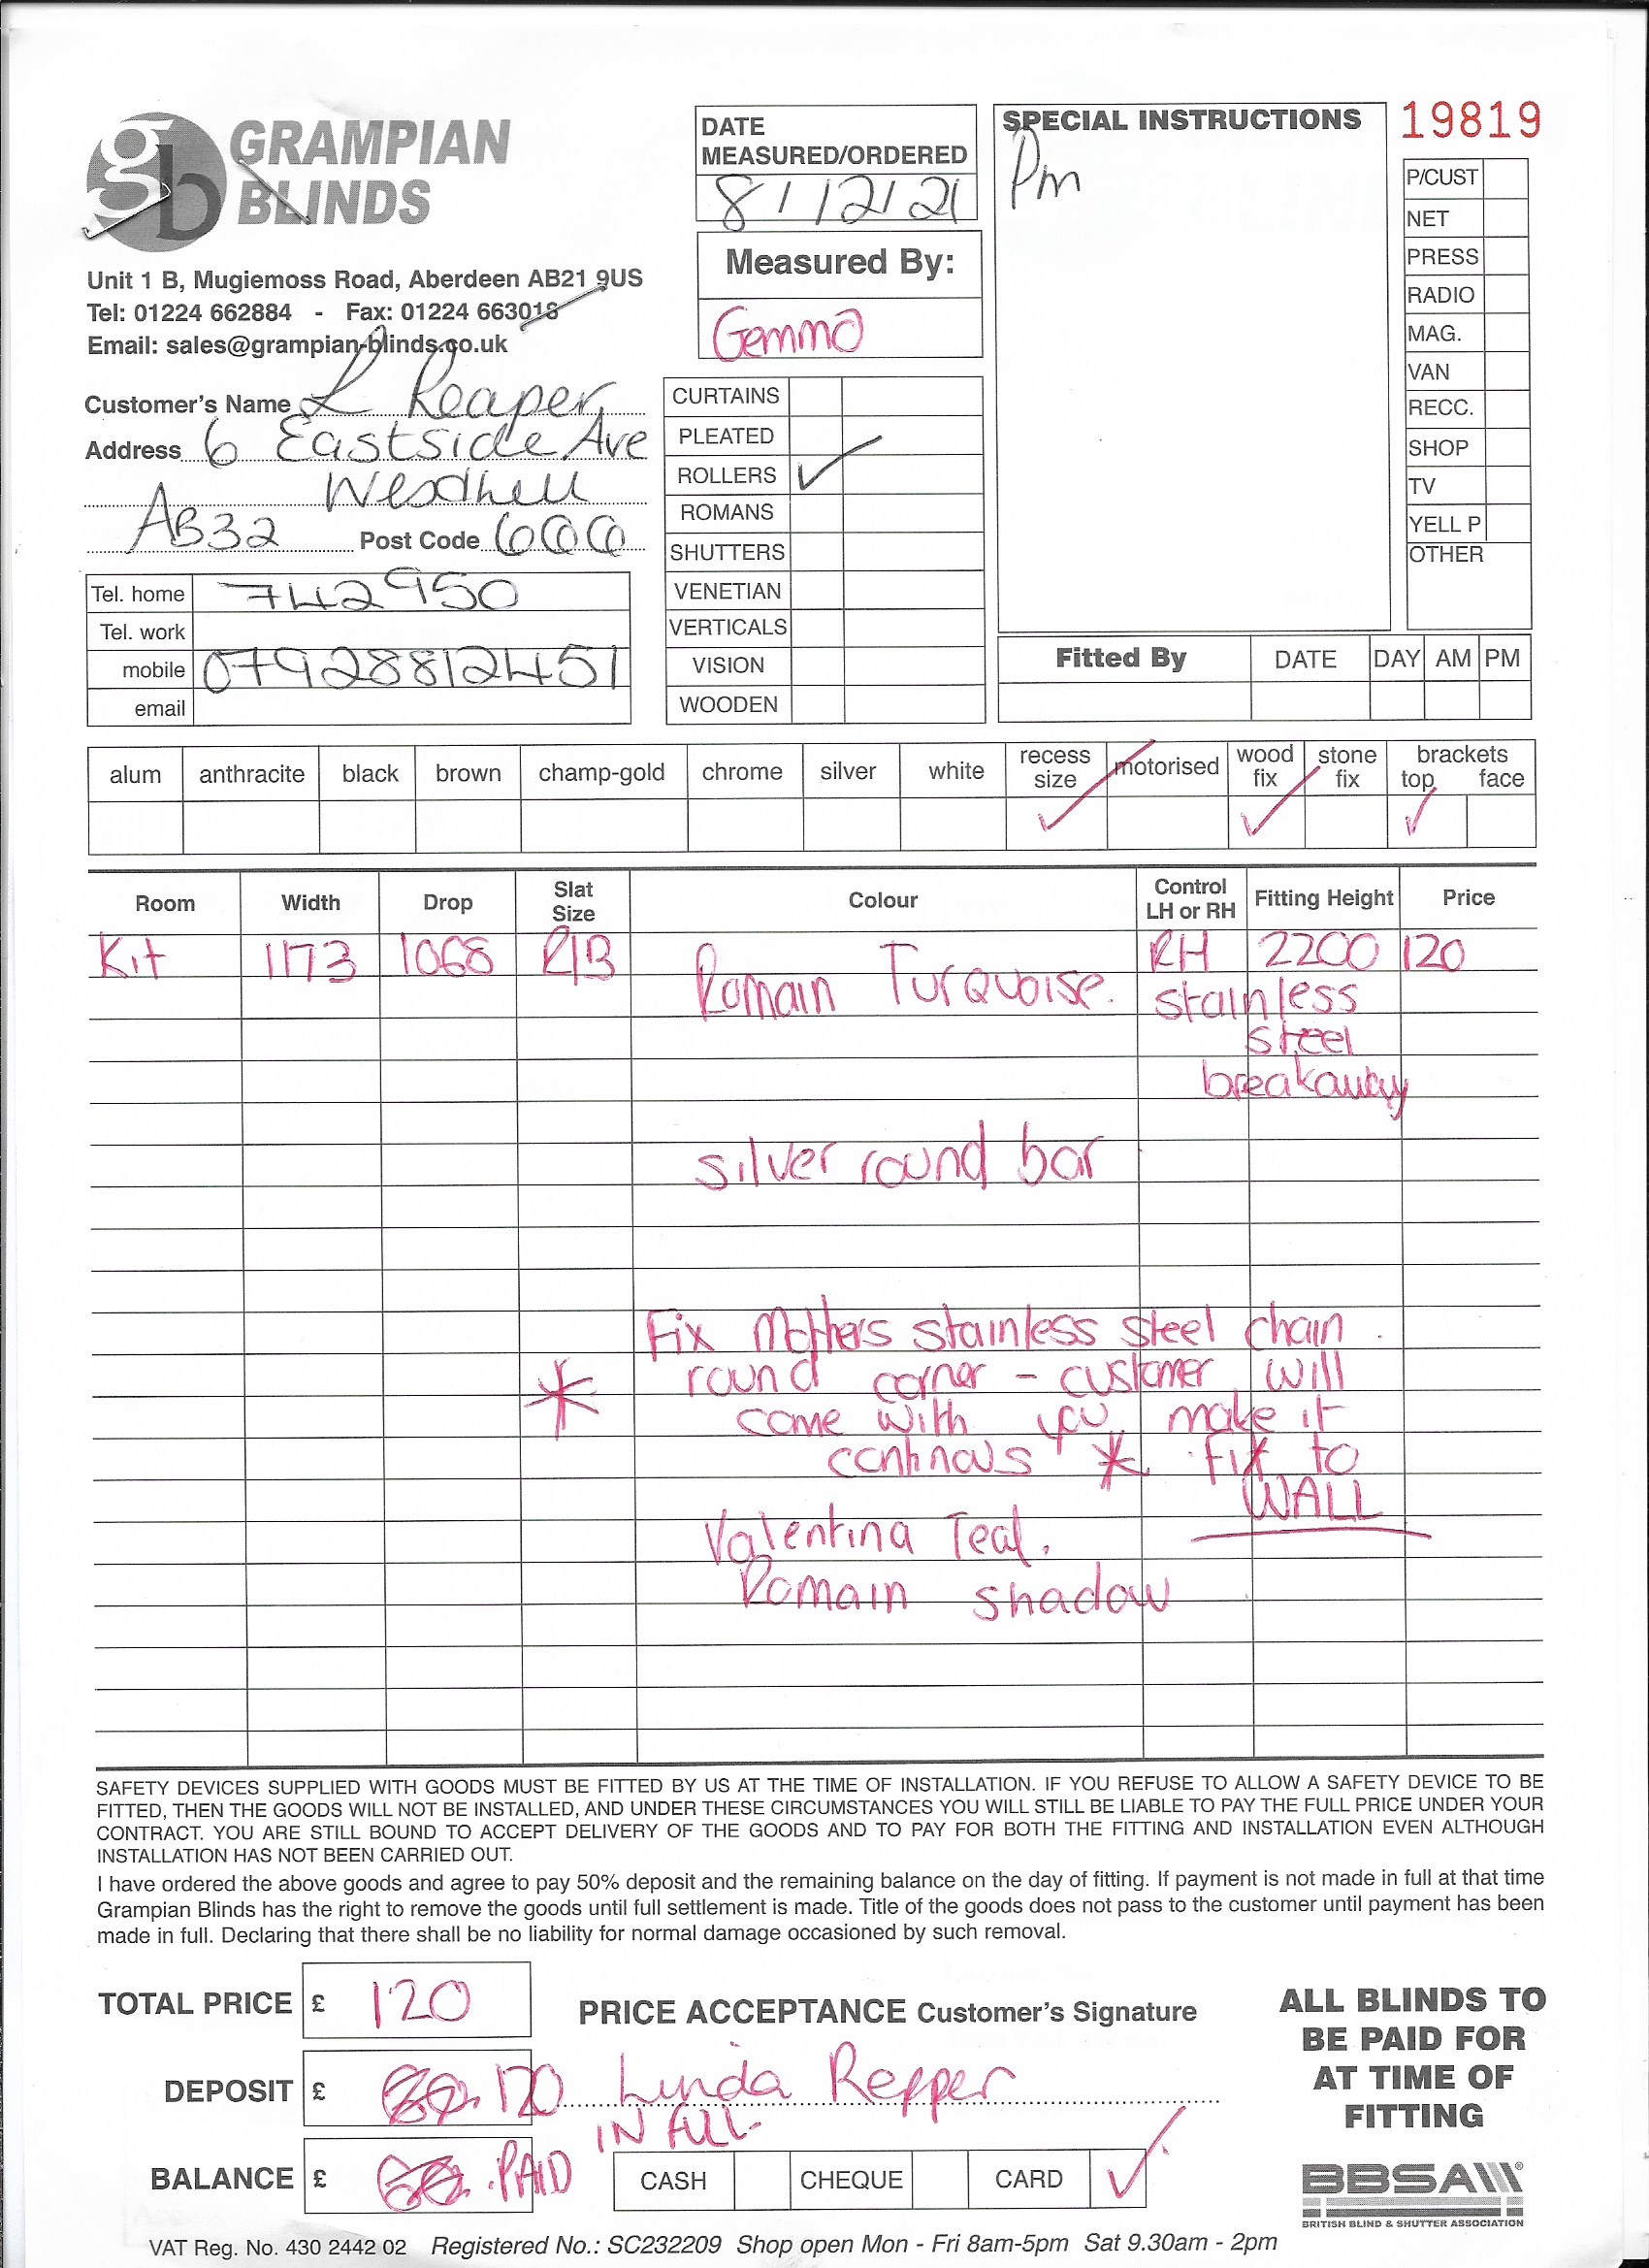 GRAMPIAN
BLINDS
Unit 1 B, Mugiemoss Road, Aberdeen AB21 9US
Tel: 01224 662884 - Fax: 01224 663018
Email: sales@grampian-blinds.co.uk
Customer's Name L Reaper
Address 6 Eastside Ave
Westhill
AB32 Post Code
Tel. home 742950
Tel. work
mobile 07928812451
email
DATE
MEASURED/ORDERED
8/12/21
Measured By:
Gemma
CURTAINS
PLEATED
ROLLERS ✓
ROMANS
SHUTTERS
VENETIAN
VERTICALS
VISION
WOODEN
SPECIAL INSTRUCTIONS
Pm
19819
P/CUST
NET
PRESS
RADIO
MAG.
VAN
RECC.
SHOP
TV
YELL P
OTHER
Fitted By DATE DAY AM PM
alum anthracite black brown champ-gold chrome silver white recess size motorised wood fix stone fix brackets top face
✓ ✓ ✓
Room Width Drop Slat Size Colour Control LH or RH Fitting Height Price
Kit 1173 1068 R/B Romain Turquoise. RH 2200 120
stainless
steel
breakaway
silver round bar
Fix Mothers stainless steel chain
round corner - customer will
* come with you make it
continous * Fix to
WALL
Valentina Teal.
Romain shadow
SAFETY DEVICES SUPPLIED WITH GOODS MUST BE FITTED BY US AT THE TIME OF INSTALLATION. IF YOU REFUSE TO ALLOW A SAFETY DEVICE TO BE
FITTED, THEN THE GOODS WILL NOT BE INSTALLED, AND UNDER THESE CIRCUMSTANCES YOU WILL STILL BE LIABLE TO PAY THE FULL PRICE UNDER YOUR
CONTRACT. YOU ARE STILL BOUND TO ACCEPT DELIVERY OF THE GOODS AND TO PAY FOR BOTH THE FITTING AND INSTALLATION EVEN ALTHOUGH
INSTALLATION HAS NOT BEEN CARRIED OUT.
I have ordered the above goods and agree to pay 50% deposit and the remaining balance on the day of fitting. If payment is not made in full at that time
Grampian Blinds has the right to remove the goods until full settlement is made. Title of the goods does not pass to the customer until payment has been
made in full. Declaring that there shall be no liability for normal damage occasioned by such removal.
TOTAL PRICE £ 120
PRICE ACCEPTANCE Customer's Signature
DEPOSIT £ 120 Linda Repper
IN FULL
BALANCE £ PAID
CASH CHEQUE CARD ✓
ALL BLINDS TO
BE PAID FOR
AT TIME OF
FITTING
BBSA
BRITISH BLIND & SHUTTER ASSOCIATION
VAT Reg. No. 430 2442 02 Registered No.: SC232209 Shop open Mon - Fri 8am-5pm Sat 9.30am - 2pm